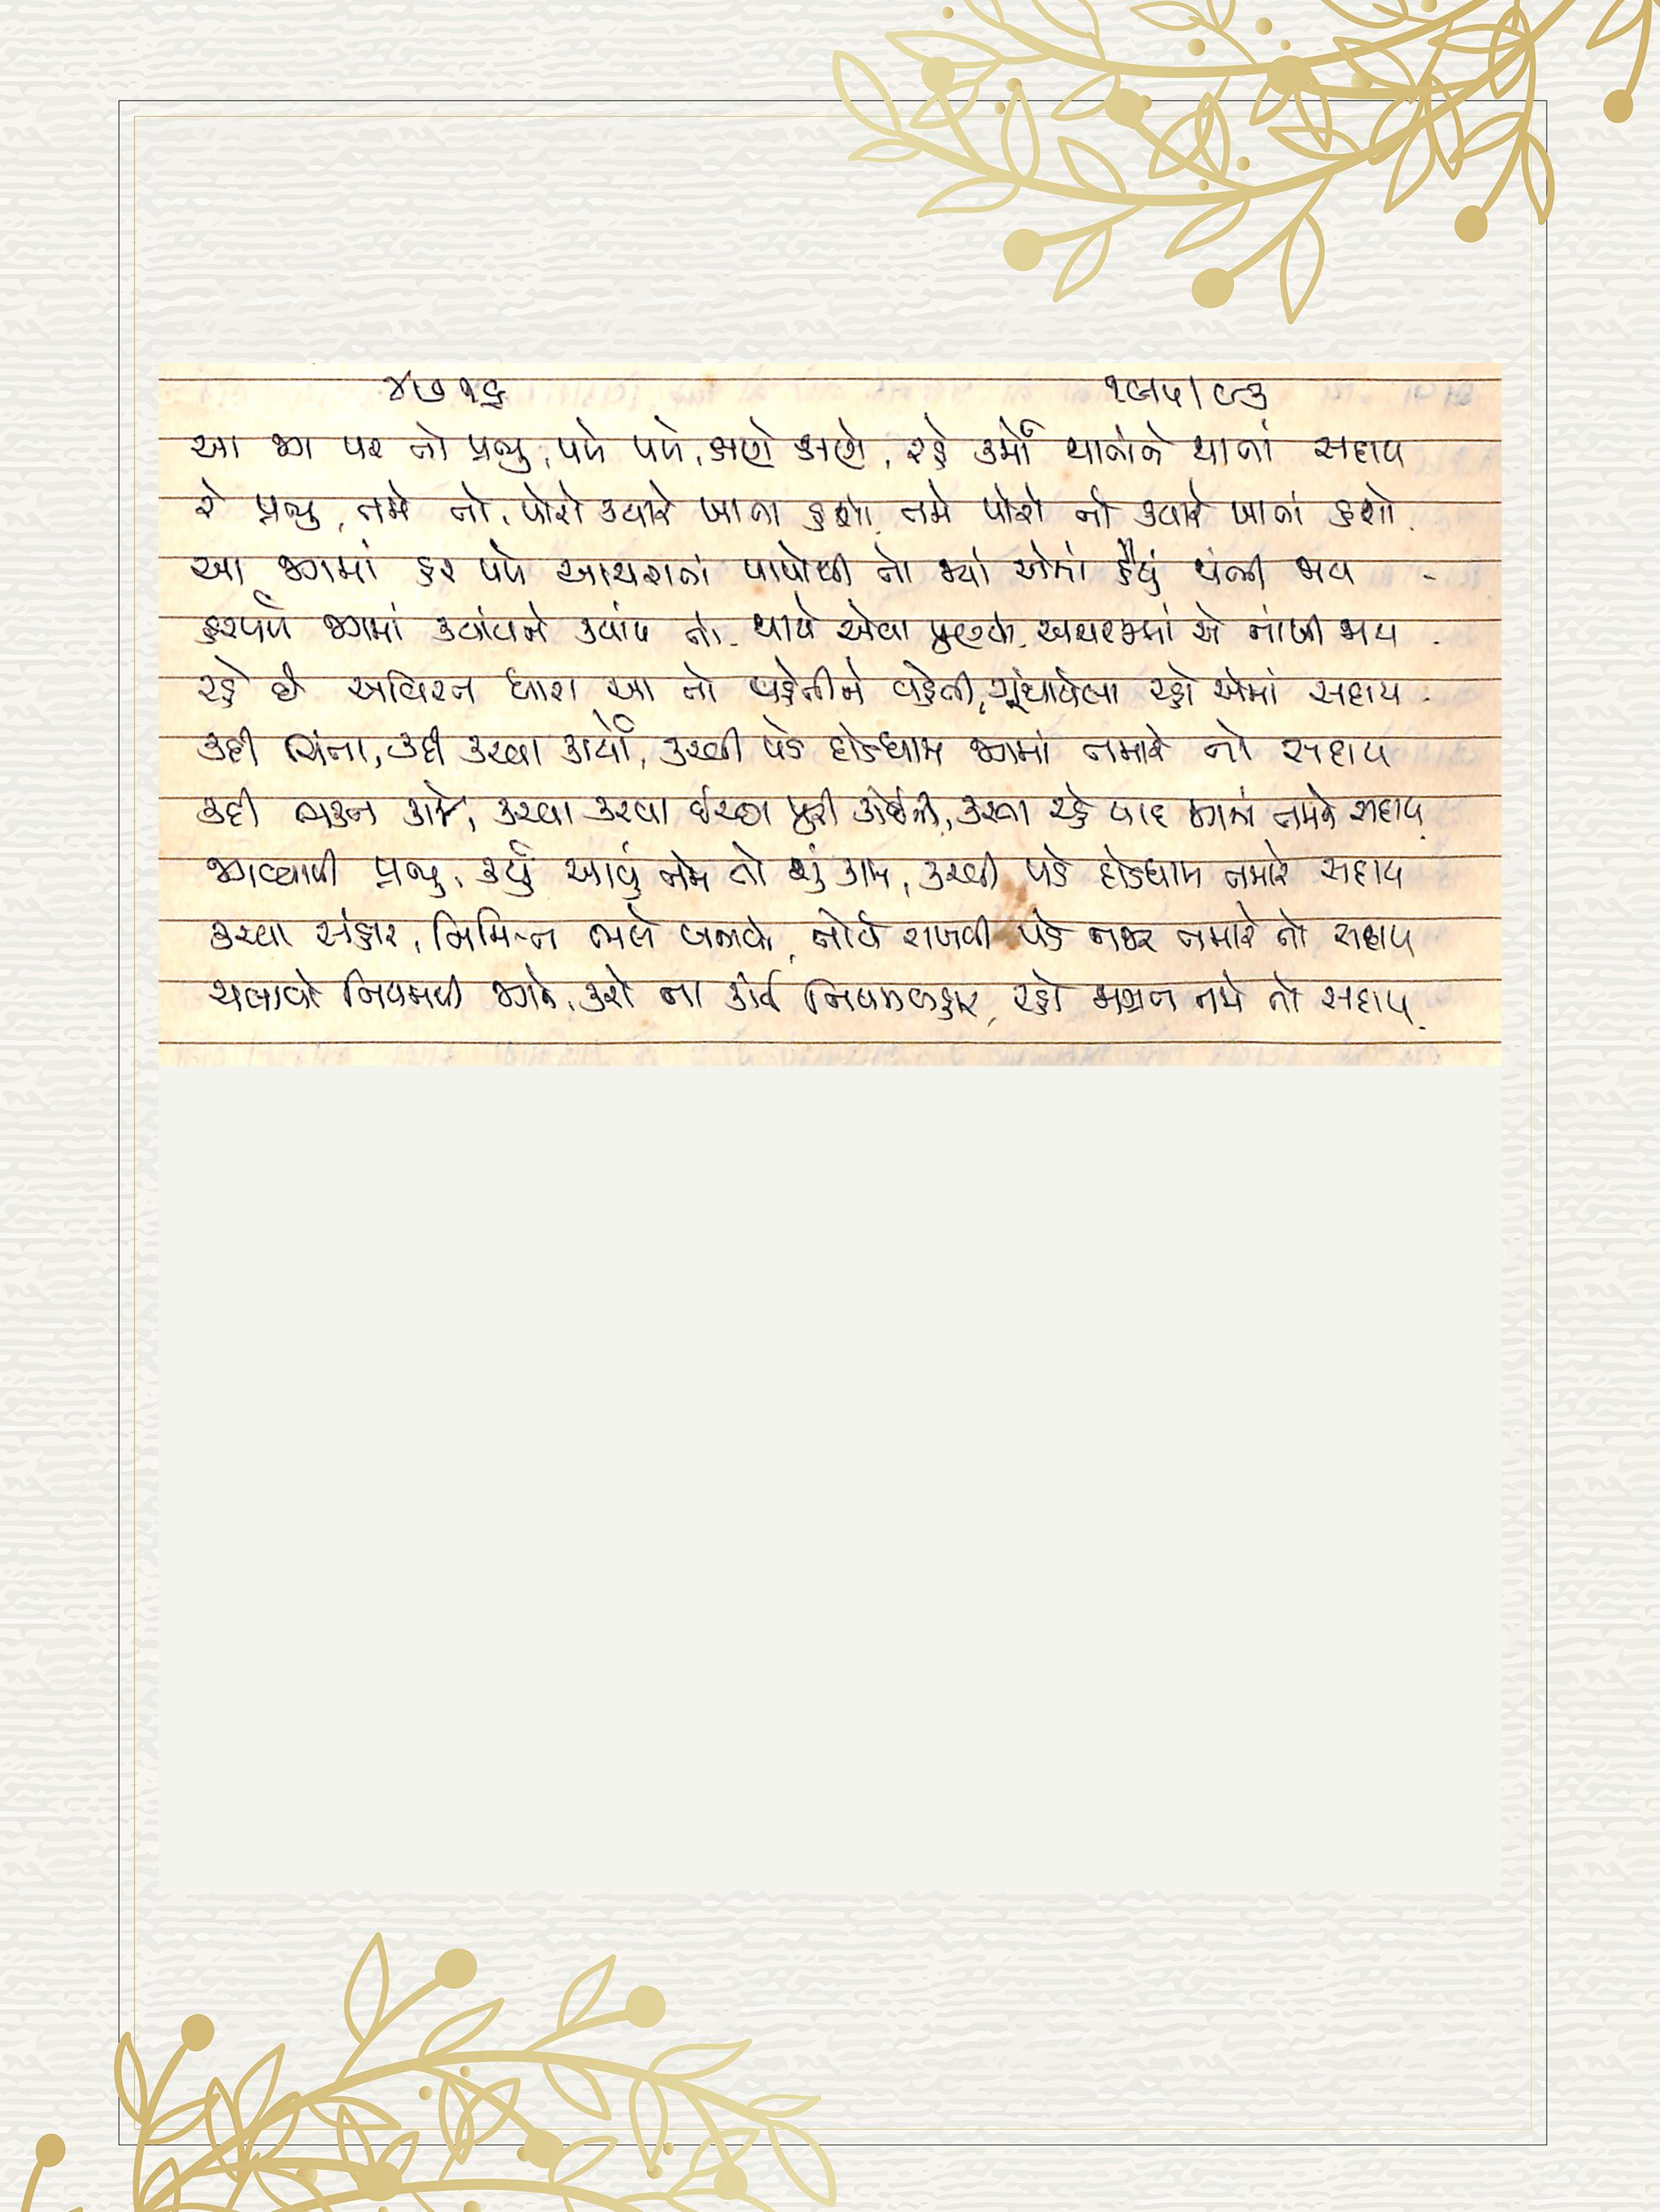 ૪૭૧૬ ૧૯૫/૯૩
આ જગ પર તો પ્રભુ, પળે પળે, ક્ષણે ક્ષણે, રહે કર્મો થાતાંને થાતાં સદાય
રે પ્રભુ, તમે તો, પોરો ક્યારે ખાતા હશો, તમે પોરો તો ક્યારે ખાતાં હશો.
આ જગમાં હર પળે આચરાતાં પાપોથી તો જ્યાં એમાં હૈયું થંભી જાય -
હરપળે જગમાં ક્યાંયને ક્યાંય તો થાયે એવા પુણ્યો, અચરજમાં એ નાંખી જાય.
રહે છે અવિરત ધારા આ તો વહેતીને વહેતી, ગૂંથાયેલા રહો એમાં સદાય.
કદી ચિંતા, કદી કરવા કાર્યો, કરવી પડે દોડધામ જગમાં તમારે તો સદાય
કદી ભક્ત કાજે, કરવા કરવા ઈચ્છા પૂરી કોઈની, કરતા રહે યાદ જગમાં તમને સદાય
જગવ્યાપી પ્રભુ, કર્યું આવું તમે તો શું કામ, કરવી પડે દોડધામ તમારે સદાય
કરવા સંહાર, નિમિત્ત ભલે બનાવો, તોયે રાખવી પડે નજર તમારે તો સદાય
ચલાવો નિયમથી જગને, કરો ના કોઈ નિયમ બહાર, રહો મગ્ન તમે તો સદાય.